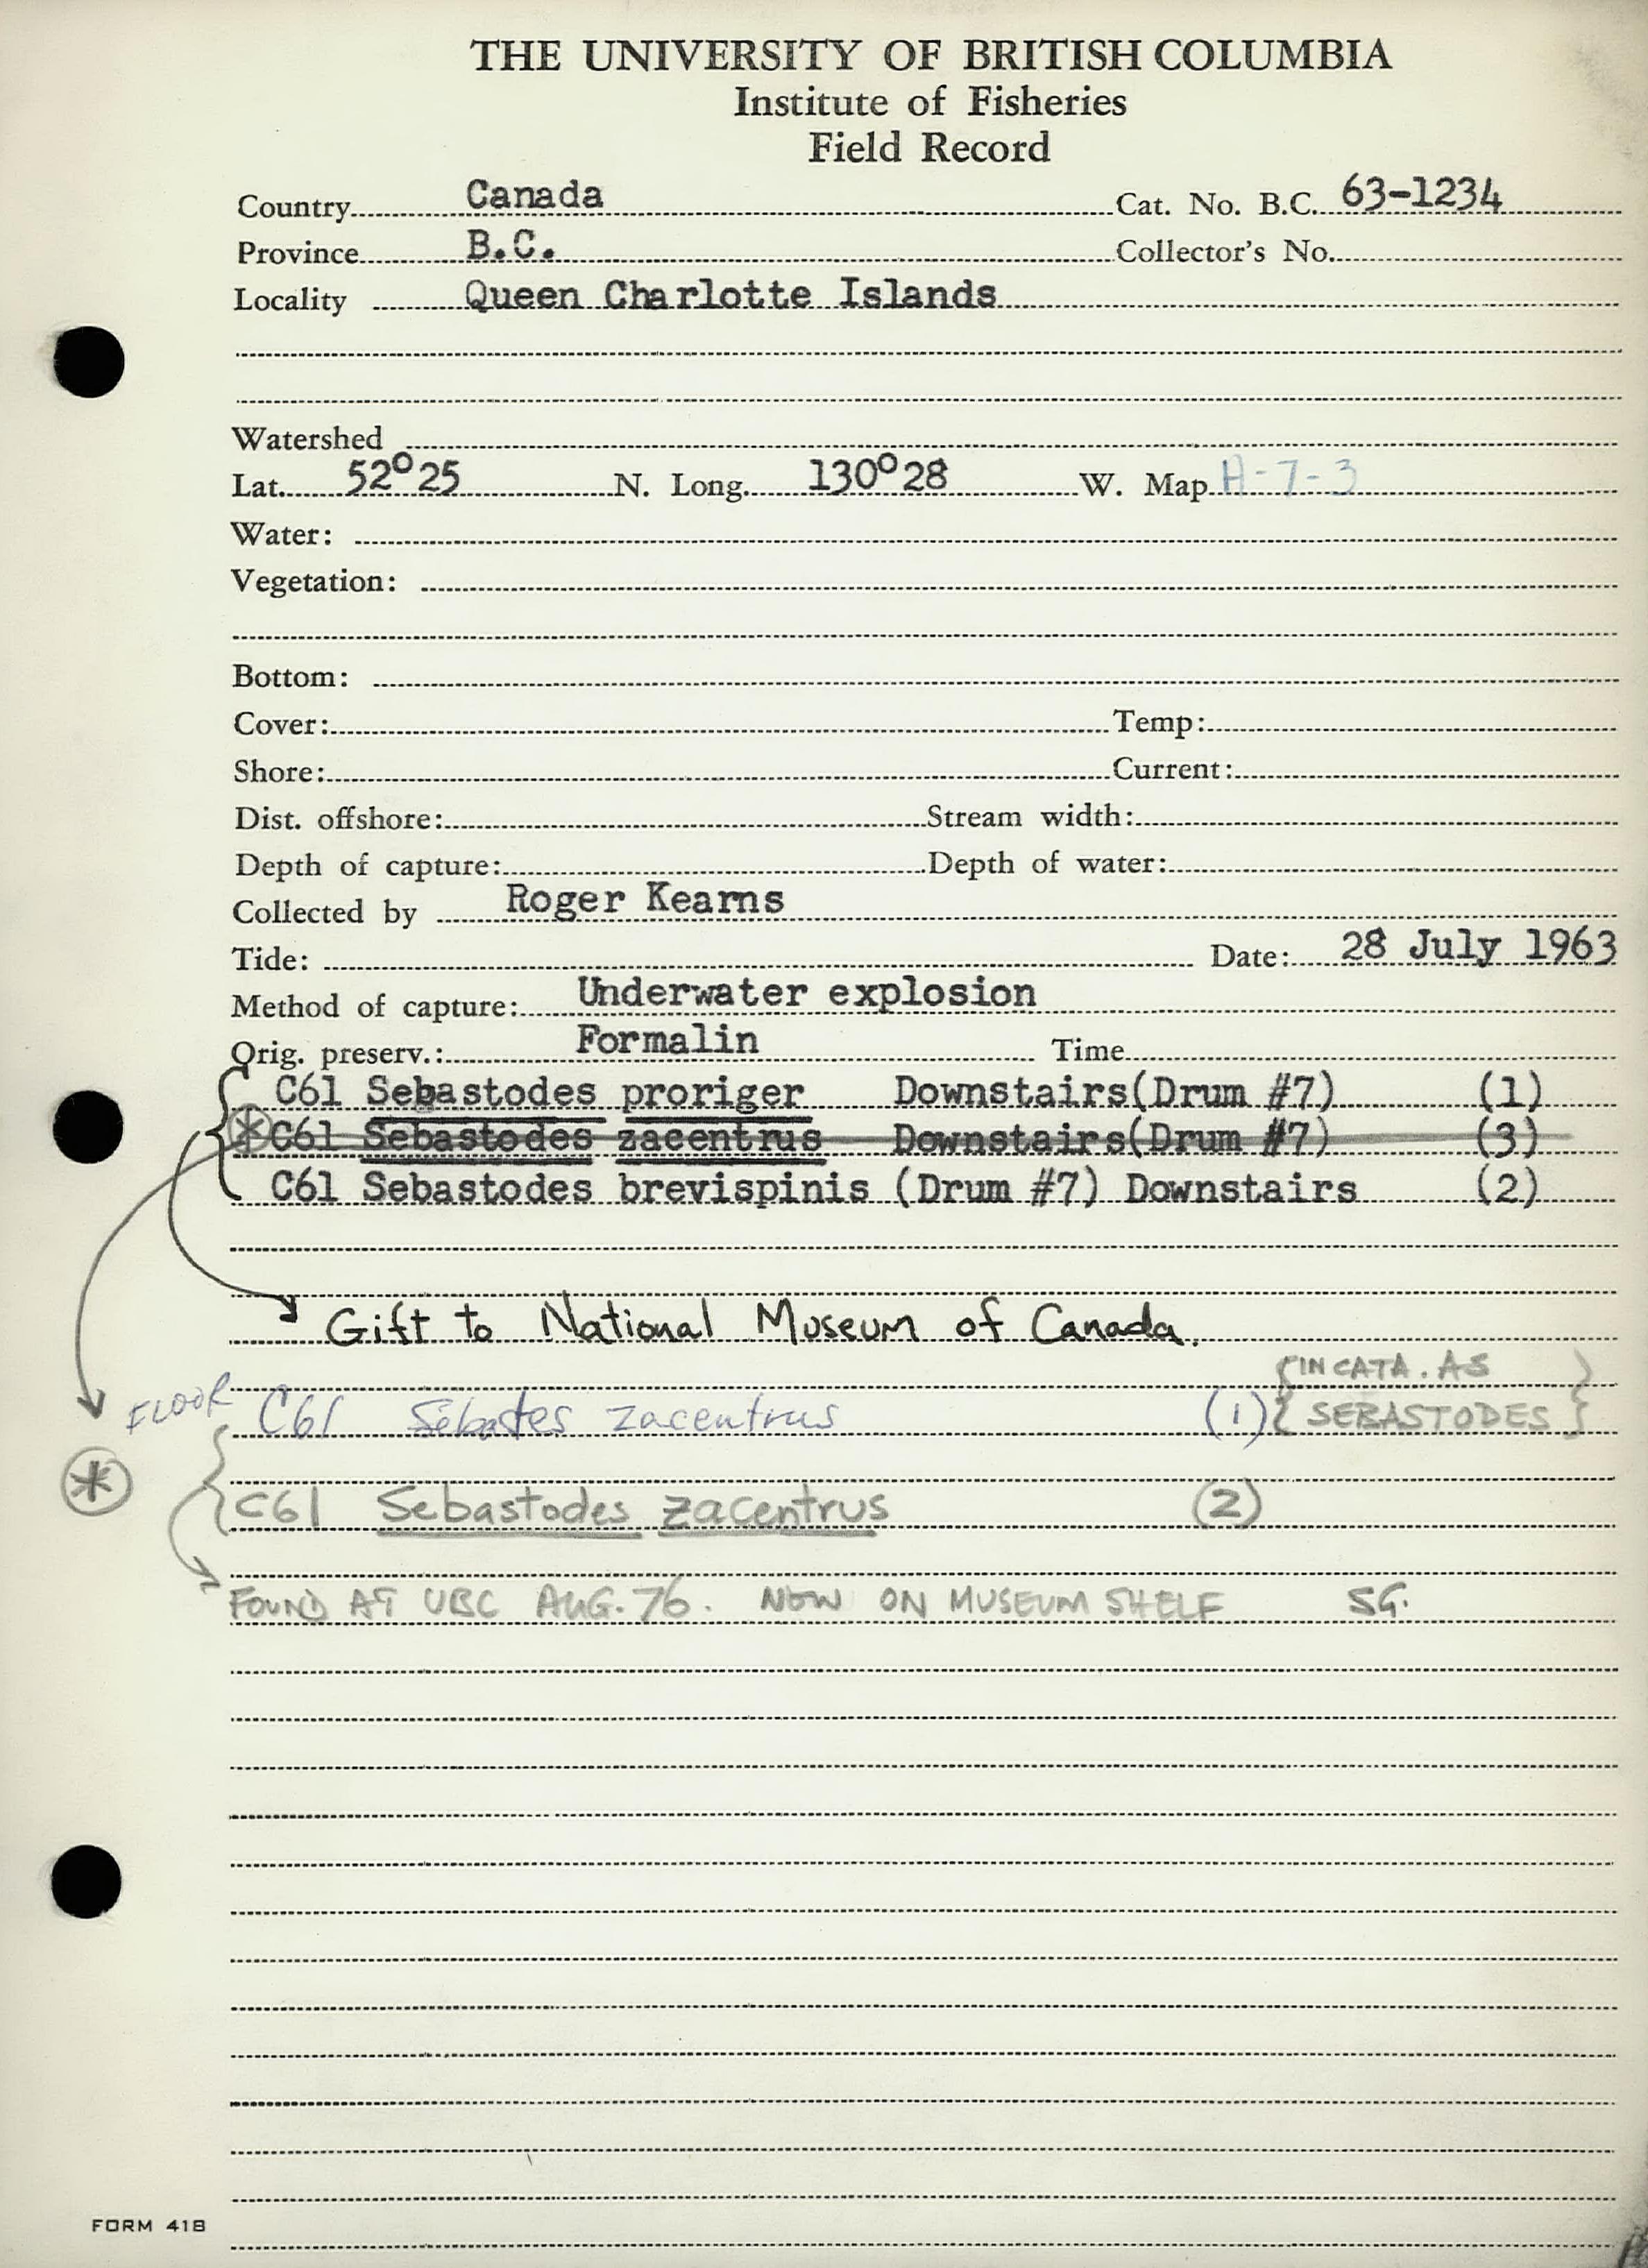 THE UNIVERSITY OF BRITISH COLUMBIA
Institute of Fisheries
Field Record
Country Canada Cat. No. B.C. 63-1234
Province B.C. Collector's No.
Locality Queen Charlotte Islands
Watershed
Lat. 52°25 N. Long. 130°28 W. Map H-7-3
Water:
Vegetation:
Bottom:
Cover: Temp:
Shore: Current:
Dist. offshore: Stream width:
Depth of capture: Depth of water:
Collected by Roger Kearns
Tide: Date: 28 July 1963
Method of capture: Underwater explosion
Orig. preserv.: Formalin Time
C61 Sebastodes proriger Downstairs(Drum #7) (1)
* C61 Sebastodes zacentrus Downstairs(Drum #7) (3)
C61 Sebastodes brevispinis (Drum #7) Downstairs (2)
Gift to National Museum of Canada.
{IN CATA. AS
FLOOR C61 Sebastes zacentrus (1) { SEBASTODES }
*
C61 Sebastodes zacentrus (2)
FOUND AT UBC AUG. 76. NOW ON MUSEUM SHELF SG.
FORM 41B